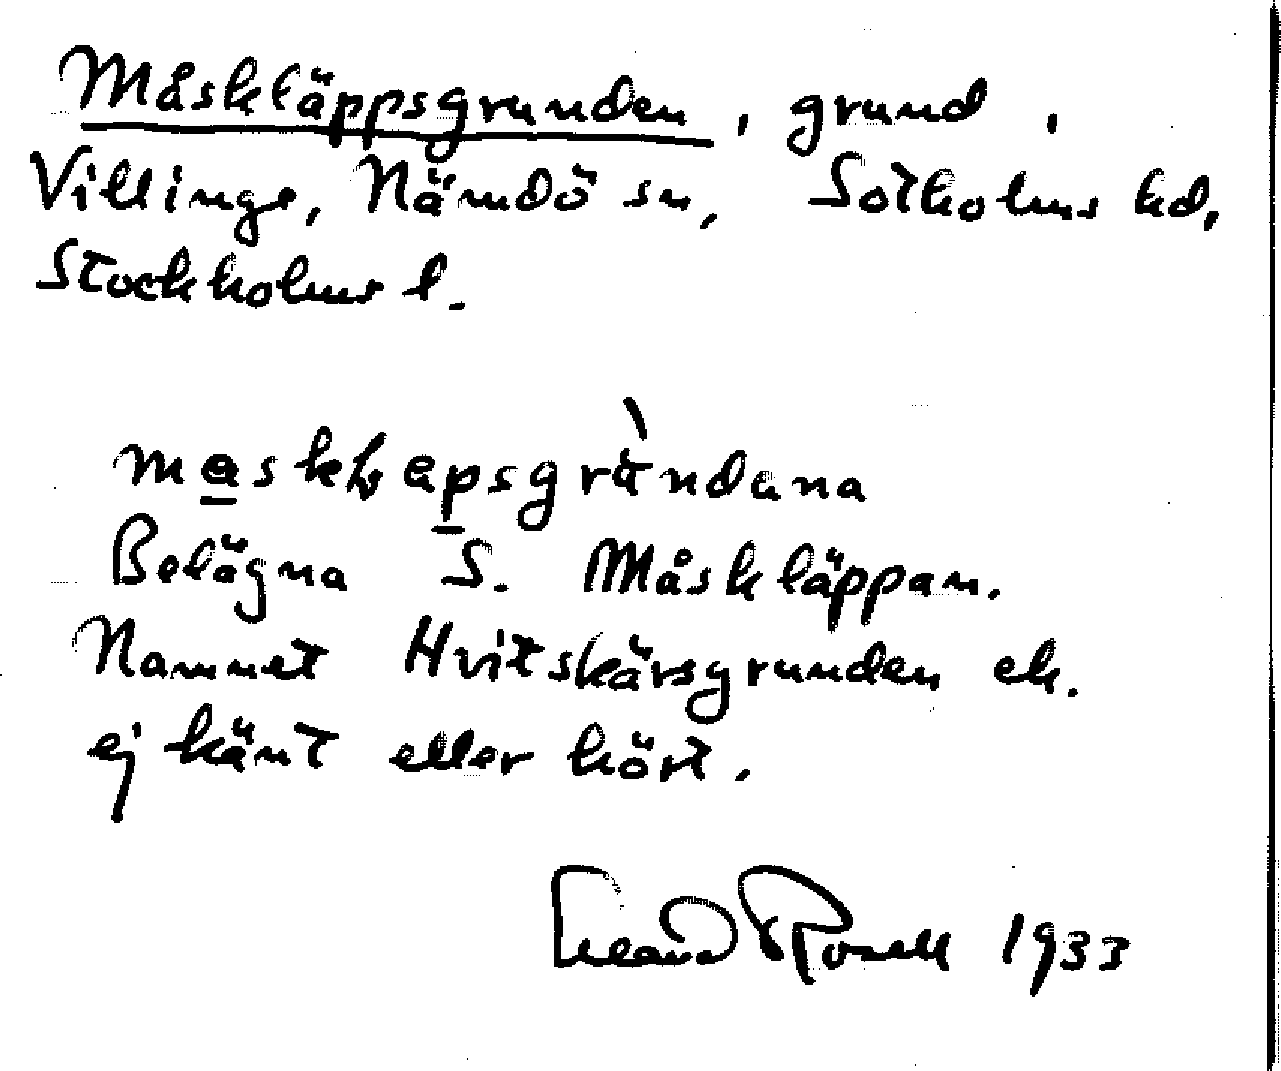 Måskläppsgrunden, grund,
Villinge, Nämdö sn, Sotholms hd,
Stockholms l.
Belägna S. Måskläppan.
Namnet Hvitskärsgrunden ek.
ej känt eller hört.
Erland Rosell 1933